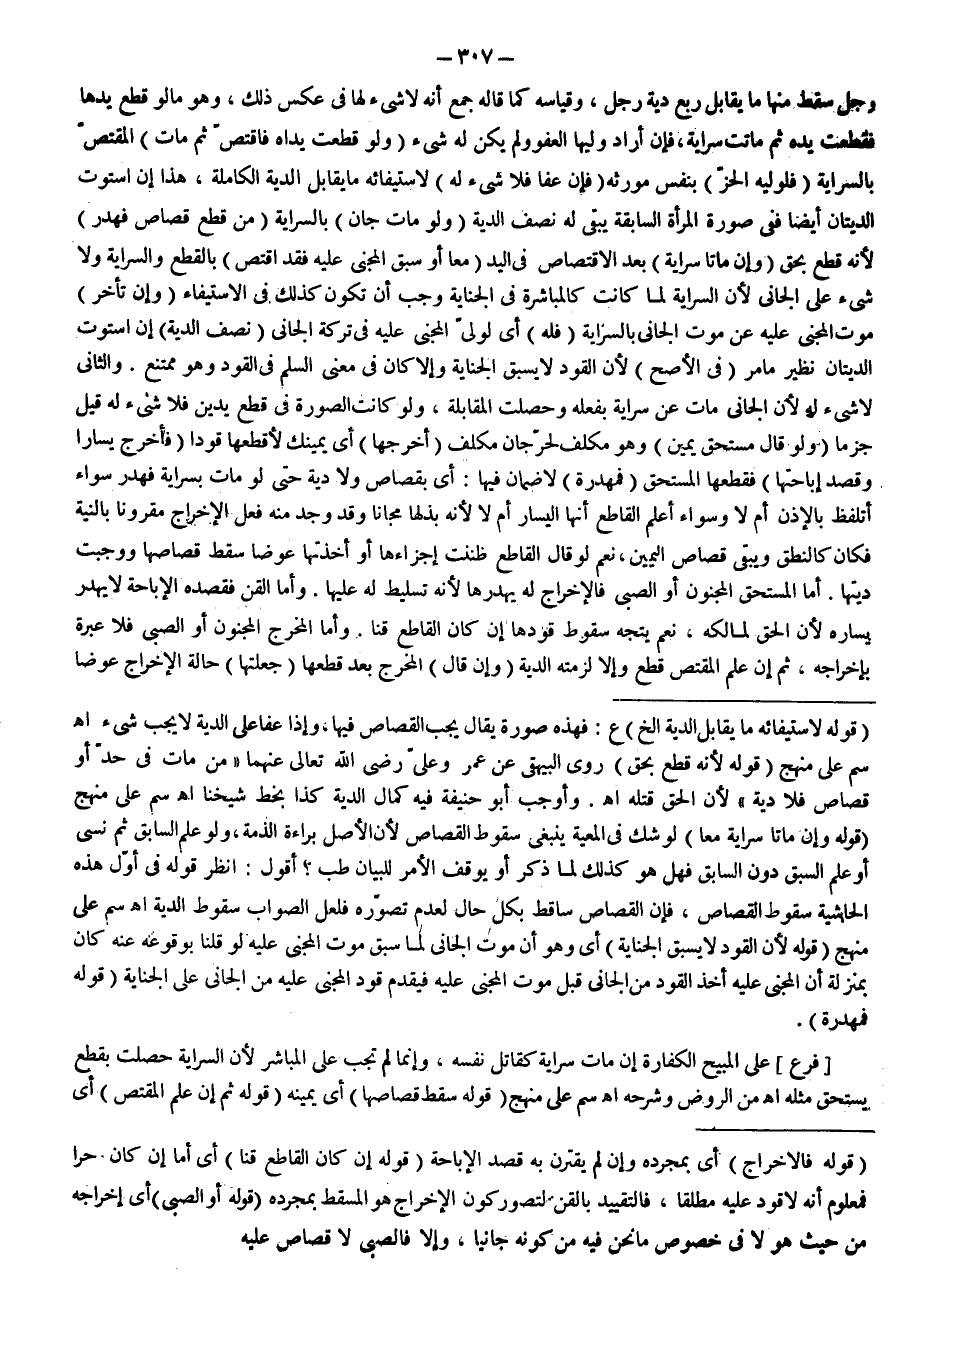 — ٣٠٧ —
وجل سقط منها ما يقابل ربع دية رجل ، وقياسه كما قاله جمع أنه لاشىء لها فى عكس ذلك ، وهو مالو قطع يدها
فقطعت يده ثم ماتت سراية ، فإن أراد وليها العفو ولم يكن له شىء ( ولو قطعت يداه فاقتصّ ثم مات ) المقتصّ
بالسراية ( فلوليه الحزّ ) بنفس مورثه ( فإن عفا فلا شىء له ) لاستيفائه مايقابل الدية الكاملة ، هذا إن استوت
الديتان أيضا ففى صورة المرأة السابقة يبقى له نصف الدية ( ولو مات جان ) بالسراية ( من قطع قصاص فهدر )
لأنه قطع بحق ( وإن ماتا سراية ) بعد الاقتصاص فى اليد ( معا أو سبق المجنى عليه فقد اقتص ) بالقطع والسراية ولا
شىء على الجانى لأن السراية لما كانت كالمباشرة فى الجناية وجب أن تكون كذلك فى الاستيفاء ( وإن تأخر )
موت المجنى عليه عن موت الجانى بالسراية ( فله ) أى لولىّ المجنى عليه فى تركة الجانى ( نصف الدية ) إن استوت
الديتان نظير مامر ( فى الأصح ) لأن القود لايسبق الجناية وإلا كان فى معنى السلم فى القود وهو ممتنع . والثانى
لاشىء له لأن الجانى مات عن سراية بفعله وحصلت المقابلة ، ولو كانت الصورة فى قطع يدين فلا شىء له قيل
جزما ( ولو قال مستحق يمين ) وهو مكلف لحرّ جان مكلف ( أخرجها ) أى يمينك لأقطعها قودا ( فأخرج يسارا
وقصد إباحتها ) فقطعها المستحق ( فمهدرة ) لاضمان فيها : أى بقصاص ولا دية حتى لو مات بسراية فهدر سواء
أتلفظ بالإذن أم لا وسواء أعلم القاطع أنها اليسار أم لا لأنه بذلها مجانا وقد وجد منه فعل الإخراج مقرونا بالنية
فكان كالنطق ويبقى قصاص اليمين ، نعم لو قال القاطع ظننت إجزاءها أو أخذتها عوضا سقط قصاصها ووجبت
ديتها . أما المستحق المجنون أو الصبى فالإخراج له يهدرها لأنه تسليط له عليها . وأما القن فقصده الإباحة لايهدر
يساره لأن الحق لمالكه ، نعم يتجه سقوط قودها إن كان القاطع قنا . وأما المخرج المجنون أو الصبى فلا عبرة
بإخراجه ، ثم إن علم المقتص قطع وإلا لزمته الدية ( وإن قال ) المخرج بعد قطعها ( جعلتها ) حالة الإخراج عوضا
( قوله لاستيفائه ما يقابل الدية الخ ) ع : فهذه صورة يقال يجب القصاص فيها ، وإذا عفا على الدية لايجب شىء اهـ
سم على منهج ( قوله لأنه قطع بحق ) روى البيهقى عن عمر وعلىّ رضى الله تعالى عنهما « من مات فى حدّ أو
قصاص فلا دية » لأن الحق قتله اهـ . وأوجب أبو حنيفة فيه كمال الدية كذا بخط شيخنا اهـ سم على منهج
( قوله وإن ماتا سراية معا ) لو شك فى المعية ينبغى سقوط القصاص لأن الأصل براءة الذمة ، ولو علم السابق ثم نسى
أو علم السبق دون السابق فهل هو كذلك لما ذكر أو يوقف الأمر للبيان طب ؟ أقول : انظر قوله فى أوّل هذه
الحاشية سقوط القصاص ، فإن القصاص ساقط بكل حال لعدم تصوّره فلعل الصواب سقوط الدية اهـ سم على
منهج ( قوله لأن القود لايسبق الجناية ) أى وهو أن موت الجانى لما سبق موت المجنى عليه لو قلنا بوقوعه عنه كان
بمنزلة أن المجنى عليه أخذ القود من الجانى قبل موت المجنى عليه فيقدم قود المجنى عليه من الجانى على الجناية ( قوله
فمهدرة ) .
[ فرع ] على المبيح الكفارة إن مات سراية كقاتل نفسه ، وإنما لم تجب على المباشر لأن السراية حصلت بقطع
يستحق مثله اهـ من الروض وشرحه اهـ سم على منهج ( قوله سقط قصاصها ) أى يمينه ( قوله ثم إن علم المقتص ) أى
( قوله فالاخراج ) أى بمجرده وإن لم يقترن به قصد الإباحة ( قوله إن كان القاطع قنا ) أى أما إن كان حرا
فمعلوم أنه لاقود عليه مطلقا ، فالتقييد بالقن لتصور كون الإخراج هو المسقط بمجرده ( قوله أو الصبى ) أى إخراجه
من حيث هو لا فى خصوص مانحن فيه من كونه جانيا ، وإلا فالصبى لا قصاص عليه